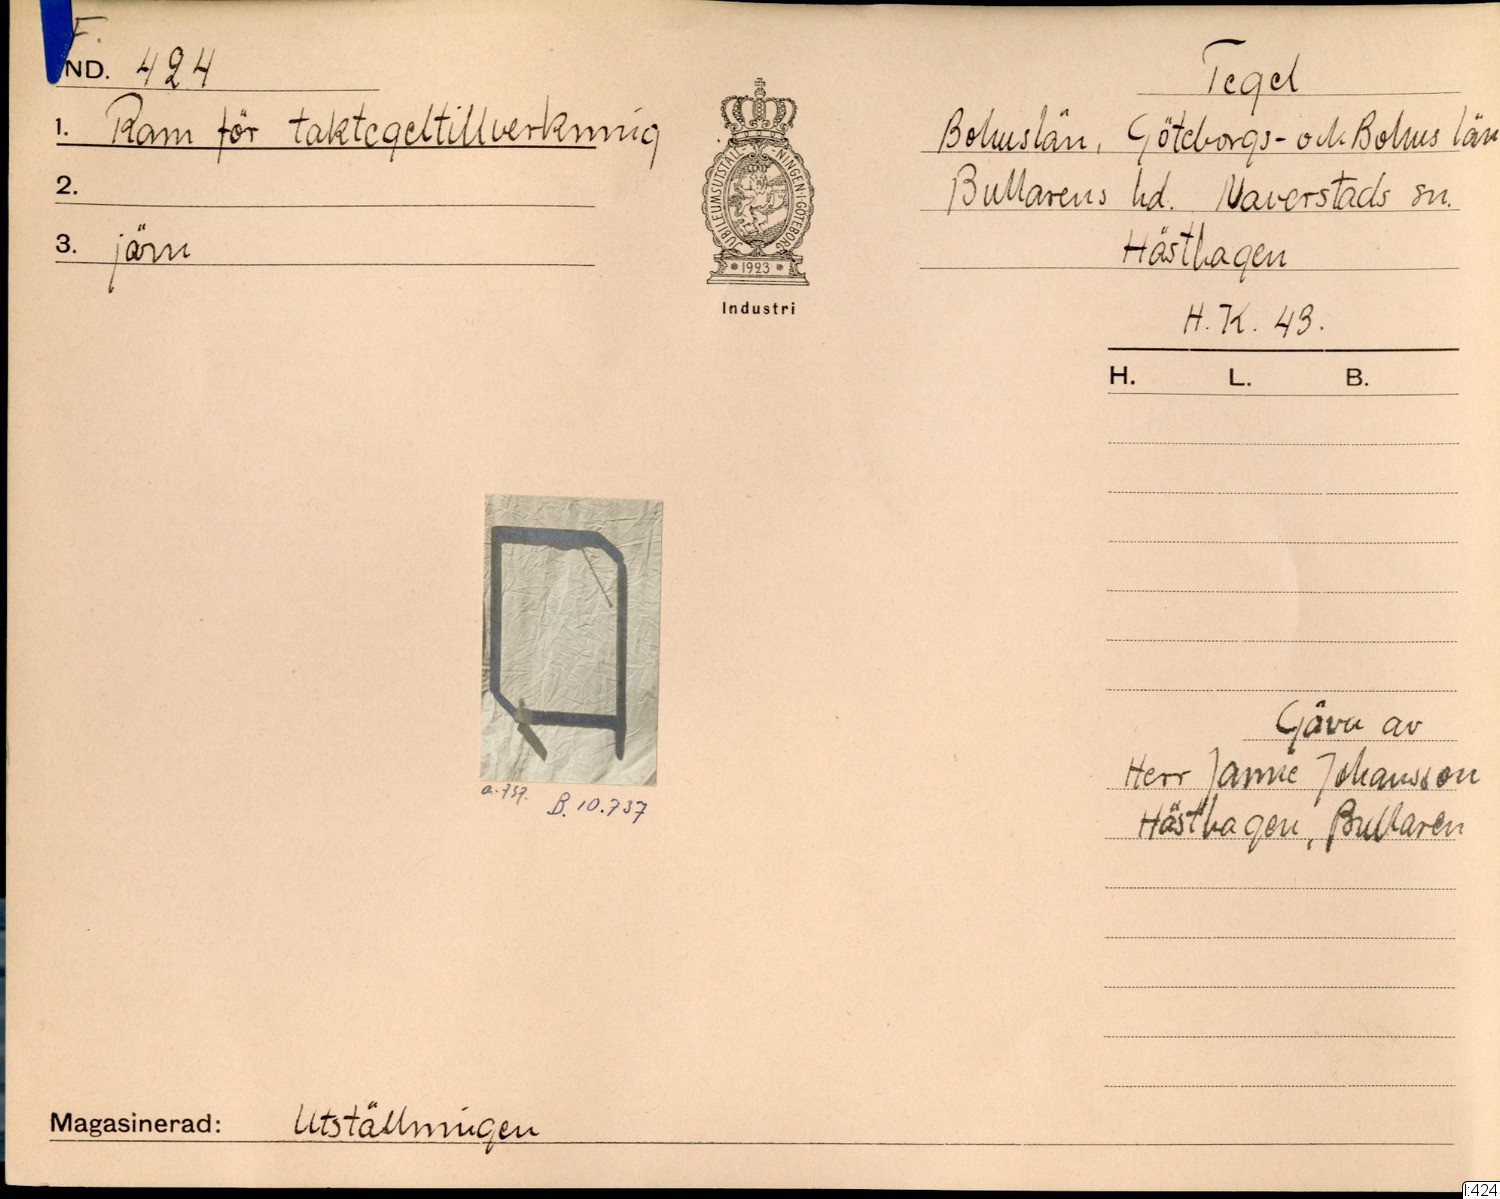 F.
IND. 424
1. Ram för taktegeltillverkning
2.
3. järn
JUBILEUMSUTSTÄLLNINGEN·I·GÖTEBORG
1923
Industri
Tegel
Bohuslän, Göteborgs- och Bohus län
Bullarens hd. Naverstads sn.
Hästhagen
H. K. 43.
H. L. B.
a.737.
B. 10.737
Gåva av
Herr Janne Johansson
Hästhagen, Bullaren
Magasinerad: Utställningen
I:424